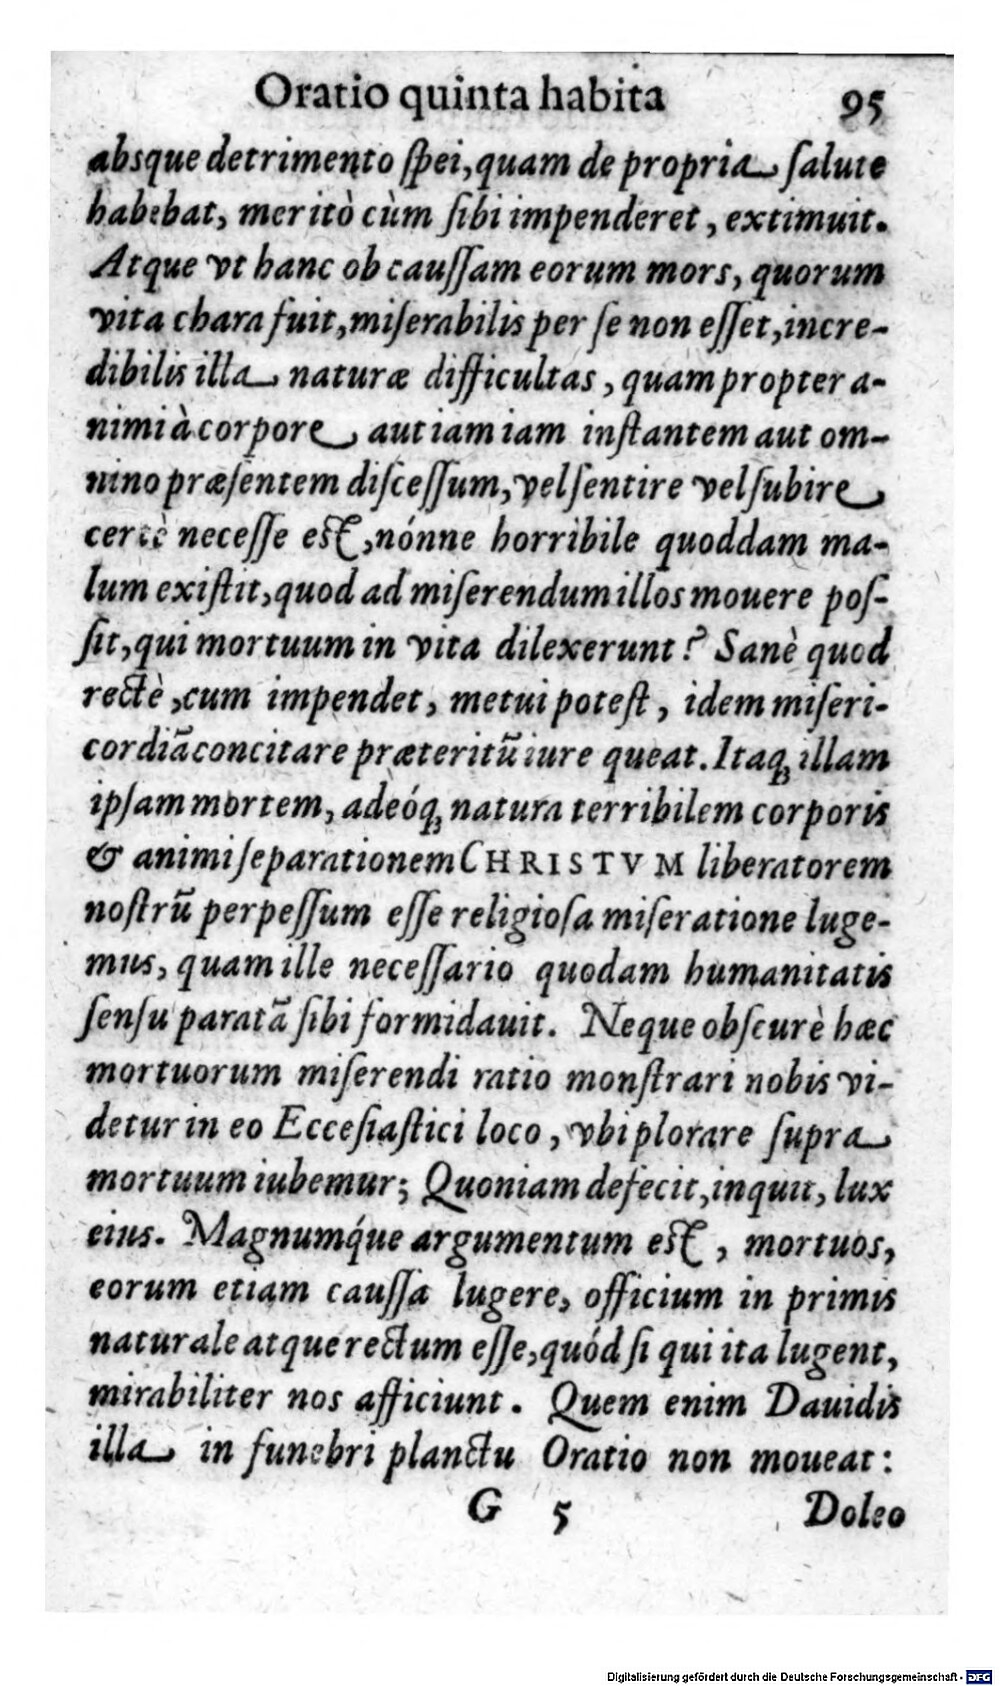 Oratio quinta habita 95
absque detrimento ſpei, quam de propria ſalute
habebat, meritò cùm ſibi impenderet, extimuit.
Atque vt hanc ob cauſſam eorum mors, quorum
vita chara fuit, miſerabilis per ſe non eſſet, incre-
dibilis illa naturæ difficultas, quam propter a-
nimi à corpore aut iam iam inſtantem aut om-
nino præſentem diſceſſum, vel ſentire vel ſubire
certè neceſſe eſt, nónne horribile quoddam ma-
lum exiſtit, quod ad miſerendum illos mouere poſ-
ſit, qui mortuum in vita dilexerunt? Sanè quod
rectè, cum impendet, metui poteſt, idem miſeri-
cordiā concitare præteritū iure queat. Itaq́; illam
ipſam mortem, adeóq́; natura terribilem corporis
& animi ſeparationem CHRISTVM liberatorem
noſtrū perpeſſum eſſe religioſa miſeratione luge-
mus, quam ille neceſſario quodam humanitatis
ſenſu paratā ſibi formidauit. Neque obſcurè hæc
mortuorum miſerendi ratio monſtrari nobis vi-
detur in eo Eccleſiaſtici loco, vbi plorare ſupra
mortuum iubemur; Quoniam defecit, inquit, lux
eius. Magnumq́ue argumentum eſt, mortuos,
eorum etiam cauſſa lugere, officium in primis
naturale atque rectum eſſe, quód ſi qui ita lugent,
mirabiliter nos afficiunt. Quem enim Dauidis
illa in funebri planctu Oratio non moueat:
G 5 Doleo
Digitalisierung gefördert durch die Deutsche Forschungsgemeinschaft - DFG